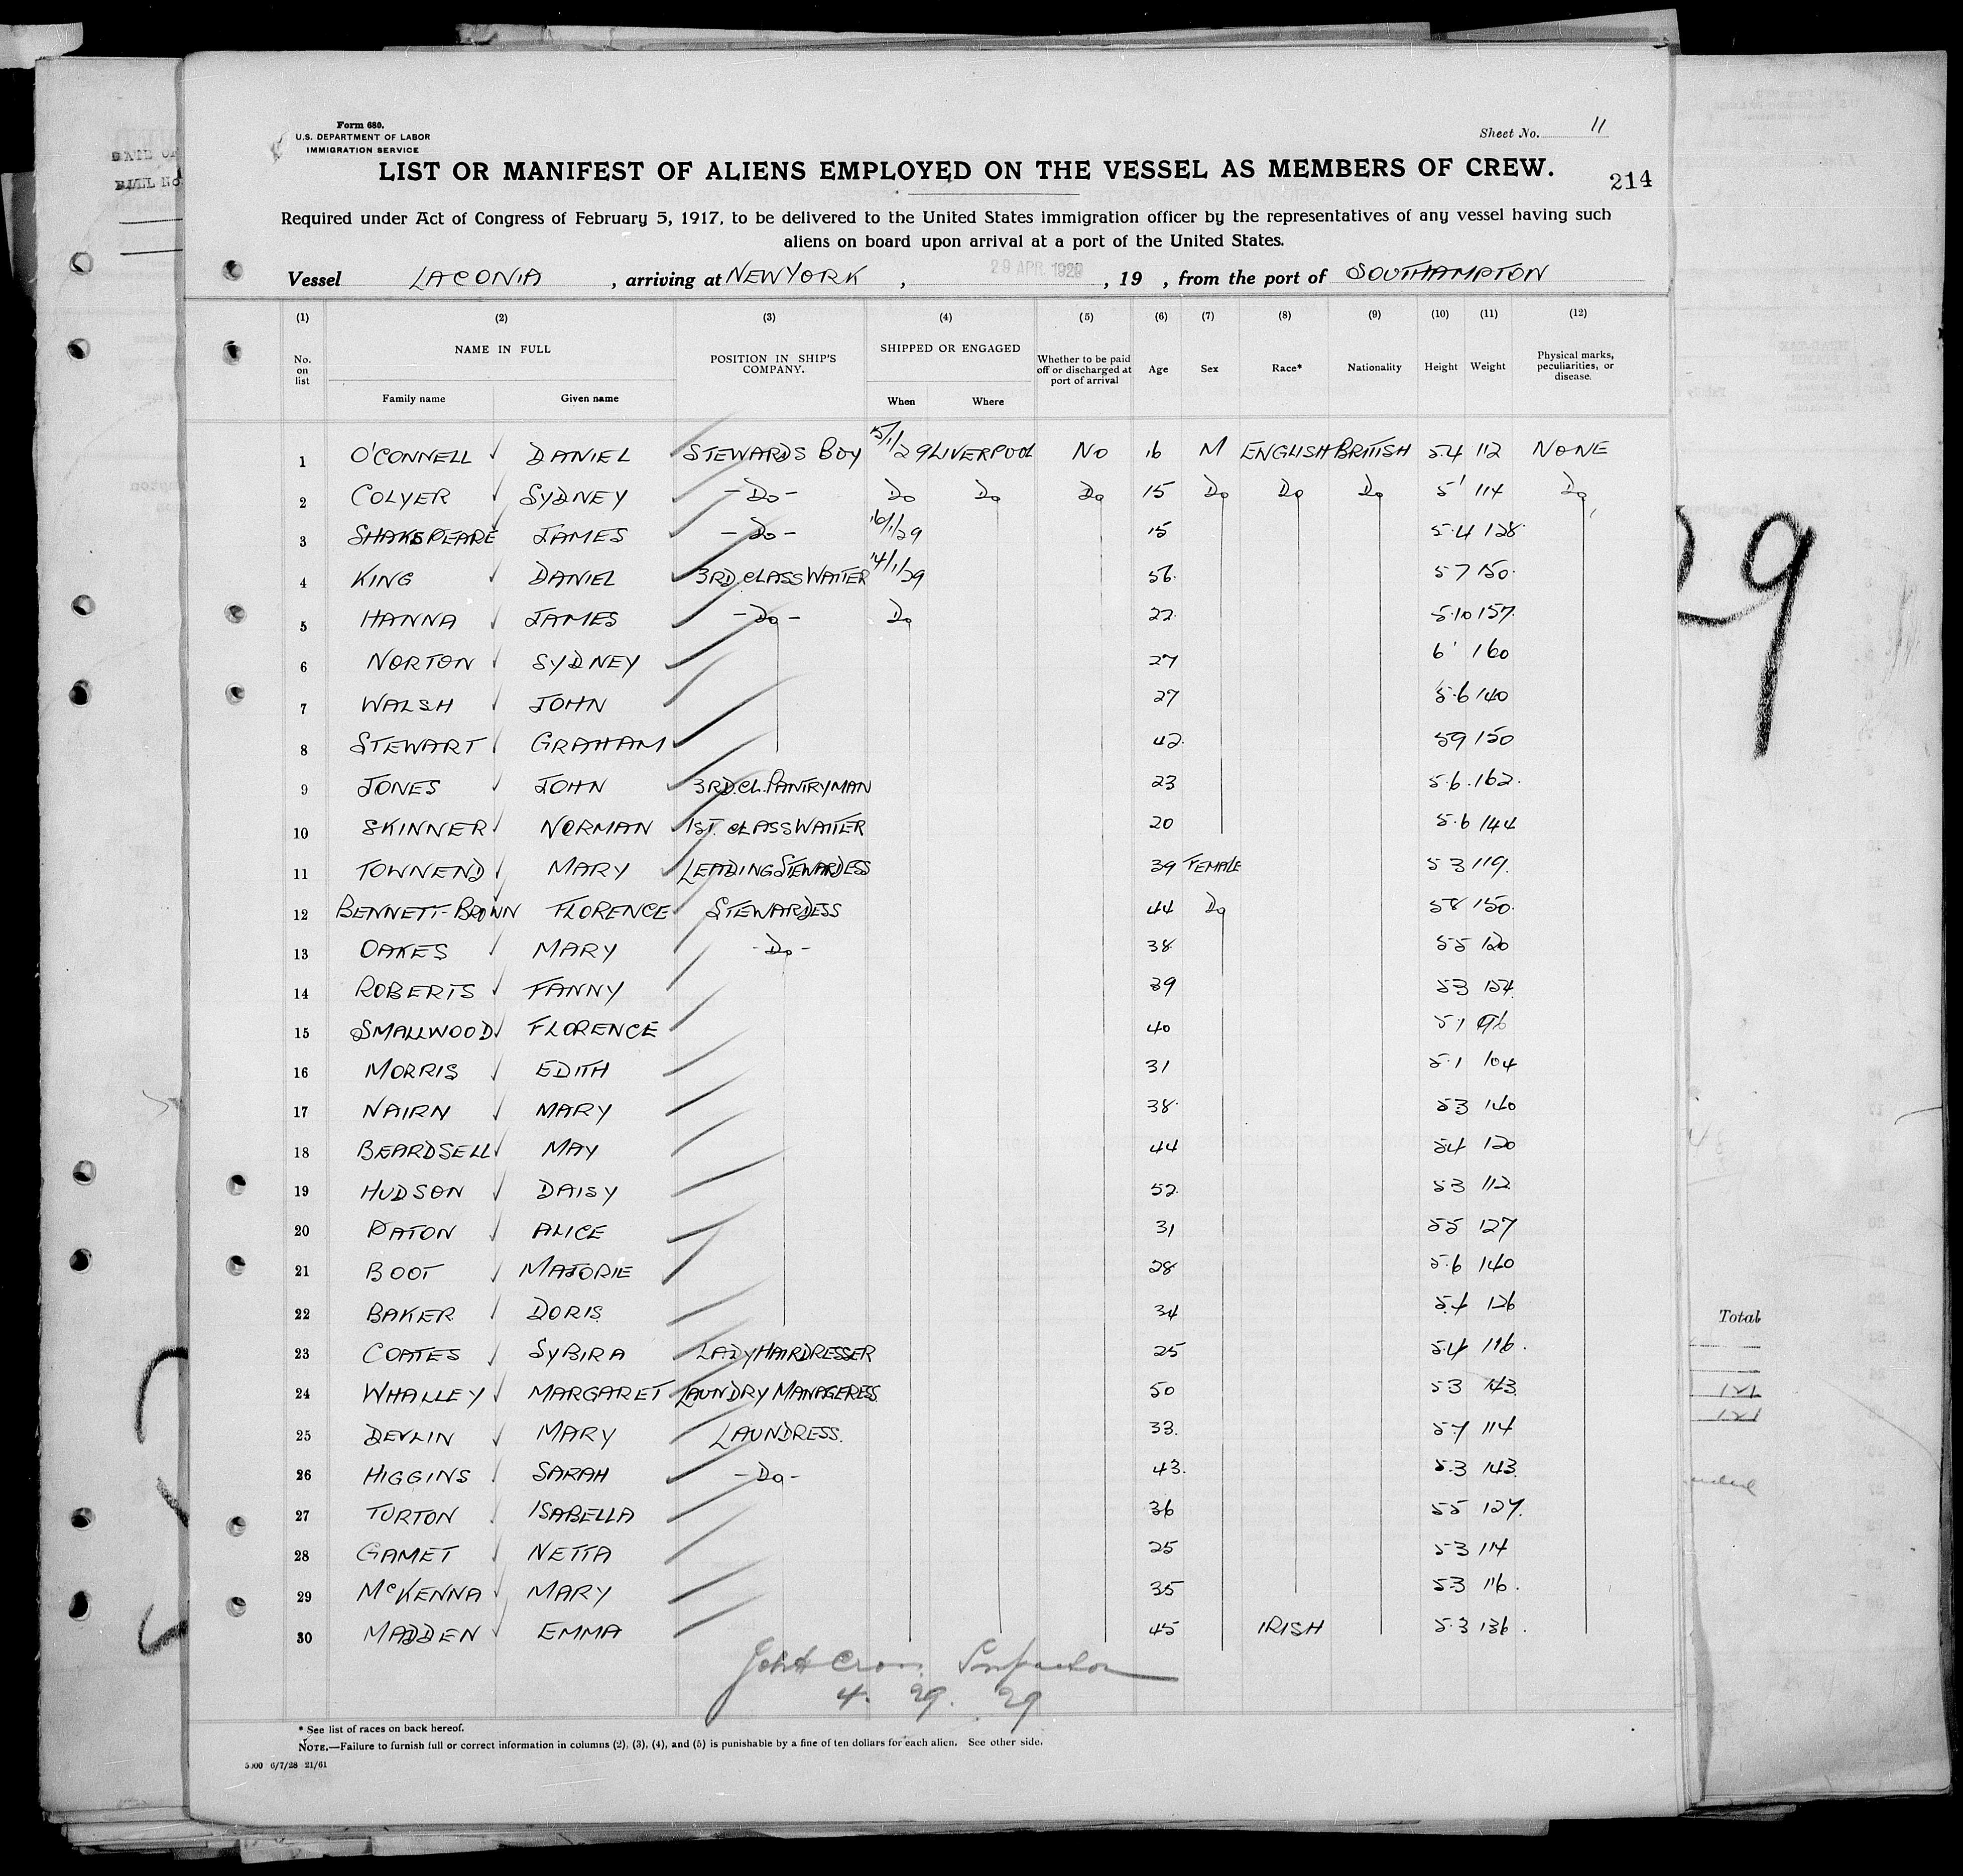 Form 680.
U.S. DEPARTMENT OF LABOR
IMMIGRATION SERVICE
Sheet No. 11
LIST OR MANIFEST OF ALIENS EMPLOYED ON THE VESSEL AS MEMBERS OF CREW.
214
Required under Act of Congress of February 5, 1917, to be delivered to the United States immigration officer by the representatives of any vessel having such
aliens on board upon arrival at a port of the United States.
Vessel LACONIA, arriving at NEW YORK, 29 APR 1929, 19 , from the port of SOUTHAMPTON
(1) (2) (3) (4) (5) (6) (7) (8) (9) (10) (11) (12)
No. on list NAME IN FULL POSITION IN SHIP'S COMPANY. SHIPPED OR ENGAGED Whether to be paid off or discharged at port of arrival Age Sex Race* Nationality Height Weight Physical marks, peculiarities, or disease.
Family name Given name When Where
1 O'CONNELL DANIEL STEWARDS BOY 15/1/29 LIVERPOOL NO 16 M ENGLISH BRITISH 5.4 112 NONE
2 COLYER SYDNEY -Do- Do Do Do 15 Do Do Do 5' 114 Do
3 SHAKESPEARE JAMES -Do- 16/1/29 15 5.4 128
4 KING DANIEL 3RD CLASS WAITER 14/1/29 56 5 7 150
5 HANNA JAMES -Do- Do 22 5.10 157
6 NORTON SYDNEY 27 6' 160
7 WALSH JOHN 27 5.6 140
8 STEWART GRAHAM 42 5 9 150
9 JONES JOHN 3RD. CL. PANTRYMAN 23 5.6 162
10 SKINNER NORMAN 1ST. CLASS WAITER 20 5.6 144
11 TOWNEND MARY LEADING STEWARDESS 39 FEMALE 5 3 119
12 BENNETT-BROWN FLORENCE STEWARDESS 44 Do 5 8 150
13 OAKES MARY -Do- 38 5 5 120
14 ROBERTS FANNY 39 5 3 154
15 SMALLWOOD FLORENCE 40 5 1 96
16 MORRIS EDITH 31 5.1 104
17 NAIRN MARY 38 5 3 140
18 BEARDSELL MAY 44 5 4 120
19 HUDSON DAISY 52 5 3 112
20 PATON ALICE 31 5 5 127
21 BOOT MAJORIE 28 5.6 140
22 BAKER DORIS 34 5.4 126
23 COATES SYBIRA LADY HAIRDRESSER 25 5.4 116
24 WHALLEY MARGARET LAUNDRY MANAGERESS 50 5 3 143
25 DEVLIN MARY LAUNDRESS. 33 114
26 HIGGINS SARAH -Do- 43 5.3 143
27 TURTON ISABELLA 36 5 5 127
28 GAMET NETTA 25 5 3 114
29 McKENNA MARY 35 5 3 116
30 MADDEN EMMA 45 IRISH 5.3 136
4. 29. 29
* See list of races on back hereof.
NOTE.—Failure to furnish full or correct information in columns (2), (3), (4), and (5) is punishable by a fine of ten dollars for each alien. See other side.
5000 6/7/28 21/61
Total
121
121
29